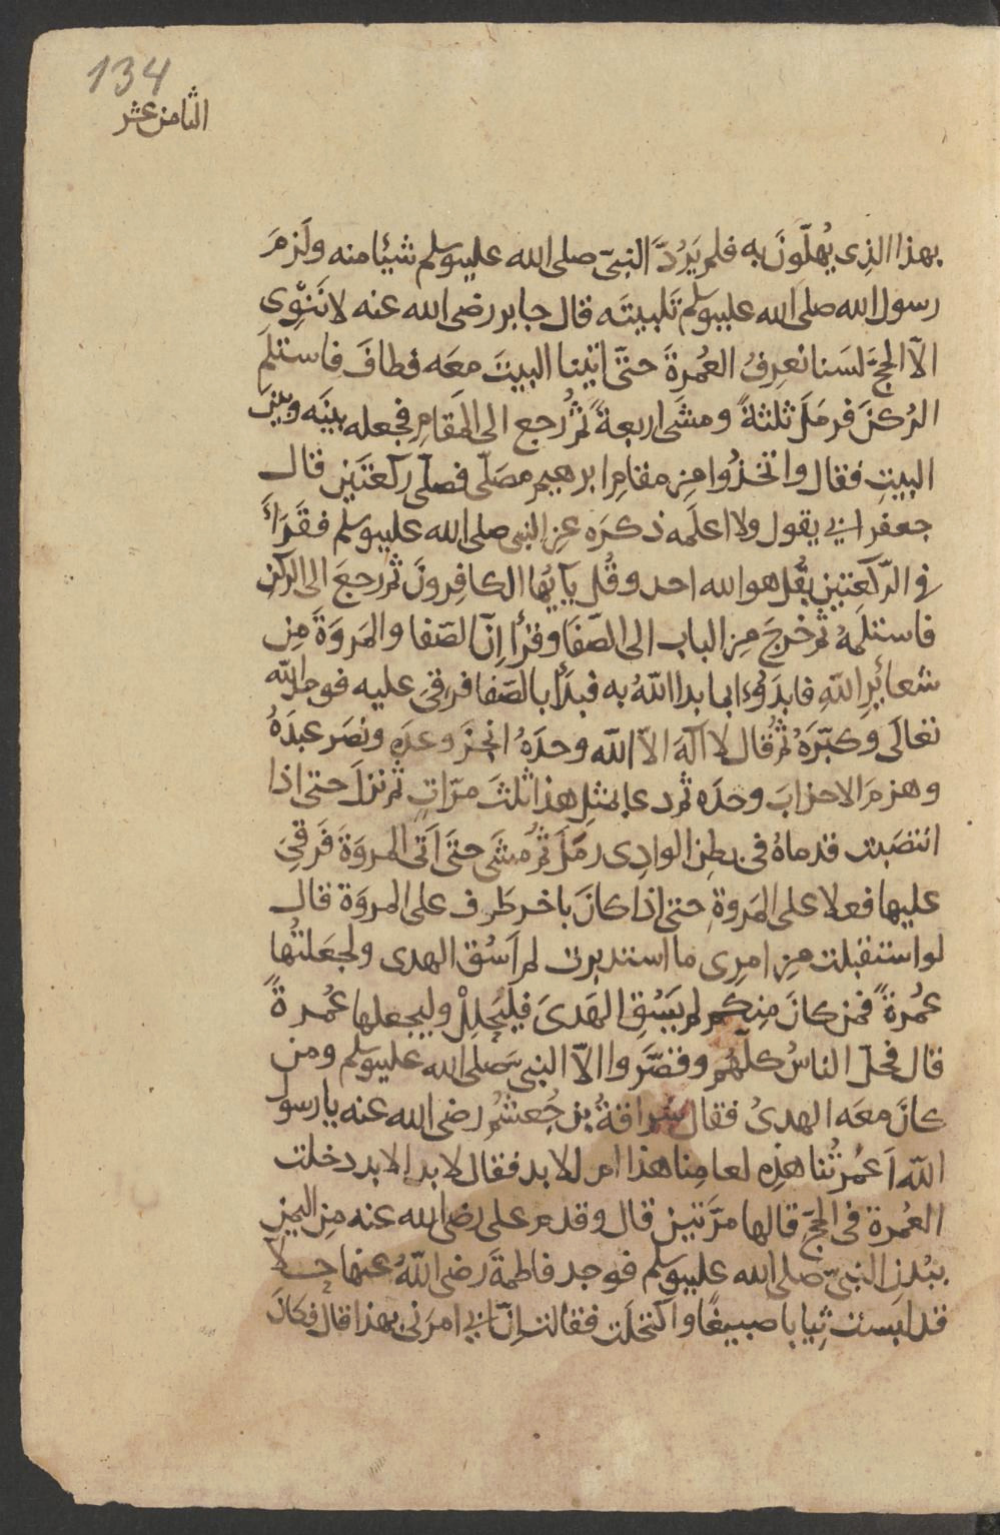 134
الثامن عشر
بهذا الذِى يُهلّونَ به فلم يَرُدَّ النبىّ صلى الله عليه وسلم شيئا منه ولَزمَ
رسول الله صلى الله عليه وسلم تَلبيتَه قال جابر رضى الله عنه لا نَنْوِى
الاّ الحجّ لسَنا نعرِفُ العُمرةَ حتىّ اتينا البيتَ معَه فطافَ فاستلَم
الرُكنَ فرمَلَ ثلثةً ومشَى اربعةً ثمُ رجع الى المَقامِ فجعله بينَه وبينَ
البيتِ فقال واتخذُوا مِن مقامِ ابرهيم مصَلّى فصلّى ركعتَين قال
جعفر ابى يقول ولا اعلمه ذكرَه عن النبى صلى الله عليه وسلم فقَرَأَ
فى الرّكعتين بقُل هو الله احد وقُل يآيّها الكافِرونَ ثم رجعَ الى الركن
فاستلَمهُ ثم خرجَ مِن الباب الى الصّفَا وقرأ انّ الصَفا والمَروَةَ مِن
شعآئِر اللّهِ فابدَؤا بما بدا اللّهُ به فبدَأ بالصَفا فرقىِ عليه فوحد اللّه
تعالَى وكبّرَهُ ثمُ قال لا آلهَ الاّ اللّه وحدَهُ انجزَ وعدَه ونصَر عبدَهُ
وهزمَ الاحزابَ وحدَه ثم دعا بمثلِ هذا ثلثَ مرّاتٍ ثم نزلَ حتى اذا
انتصَبت قدماهُ فى بطنِ الوادِى رمَلَ ثمُ مشَى حتىَ اَتى المروَةَ فَرقىِ
عليها فعلا على المَروةِ حتى اذا كانَ باخر طَرف على المروَة قال
لو استقبلت مِن امرِى ما استدبرت لم اَسُق الهدى ولجَعَلتُها
عمُرةً فمن كانَ مِنكم لم يَسُقِ الهَدىَ فليَحلِلْ وليجعلها عُمرةً
قال فحلّ الناسُ كلّهُم وقصّرَوا الاّ النبى صَلى الله عليه وسلم ومن
كانَ معَه الهدىُ فقال سُراقةُ بن جُعشُم رضى الله عنه يا رسول
اللّه اَعُمرتُنا هذِه لعامِنا هذا ام للابد فقال لابد الابد دخلت
العُمرة فى الحجّ قالها مرّتين قال وقدم على رضى الله عنه مِن اليمن
ببُدنِ النبىّ صلى الله عليه وسلم فوجد فاطمةَ رضى اللّهُ عنها حلا
قد لبَست ثِيابا صبيغًا واكتحَلَت فقالت اِنّ ابى امرَنى بهذا قال فكانَ